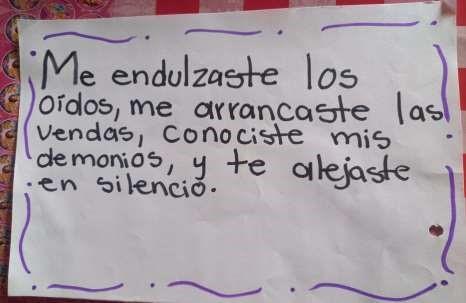 Me endulzaste los
oídos, me arrancaste las
vendas, conociste mis
demonios, y te alejaste
en silencio.